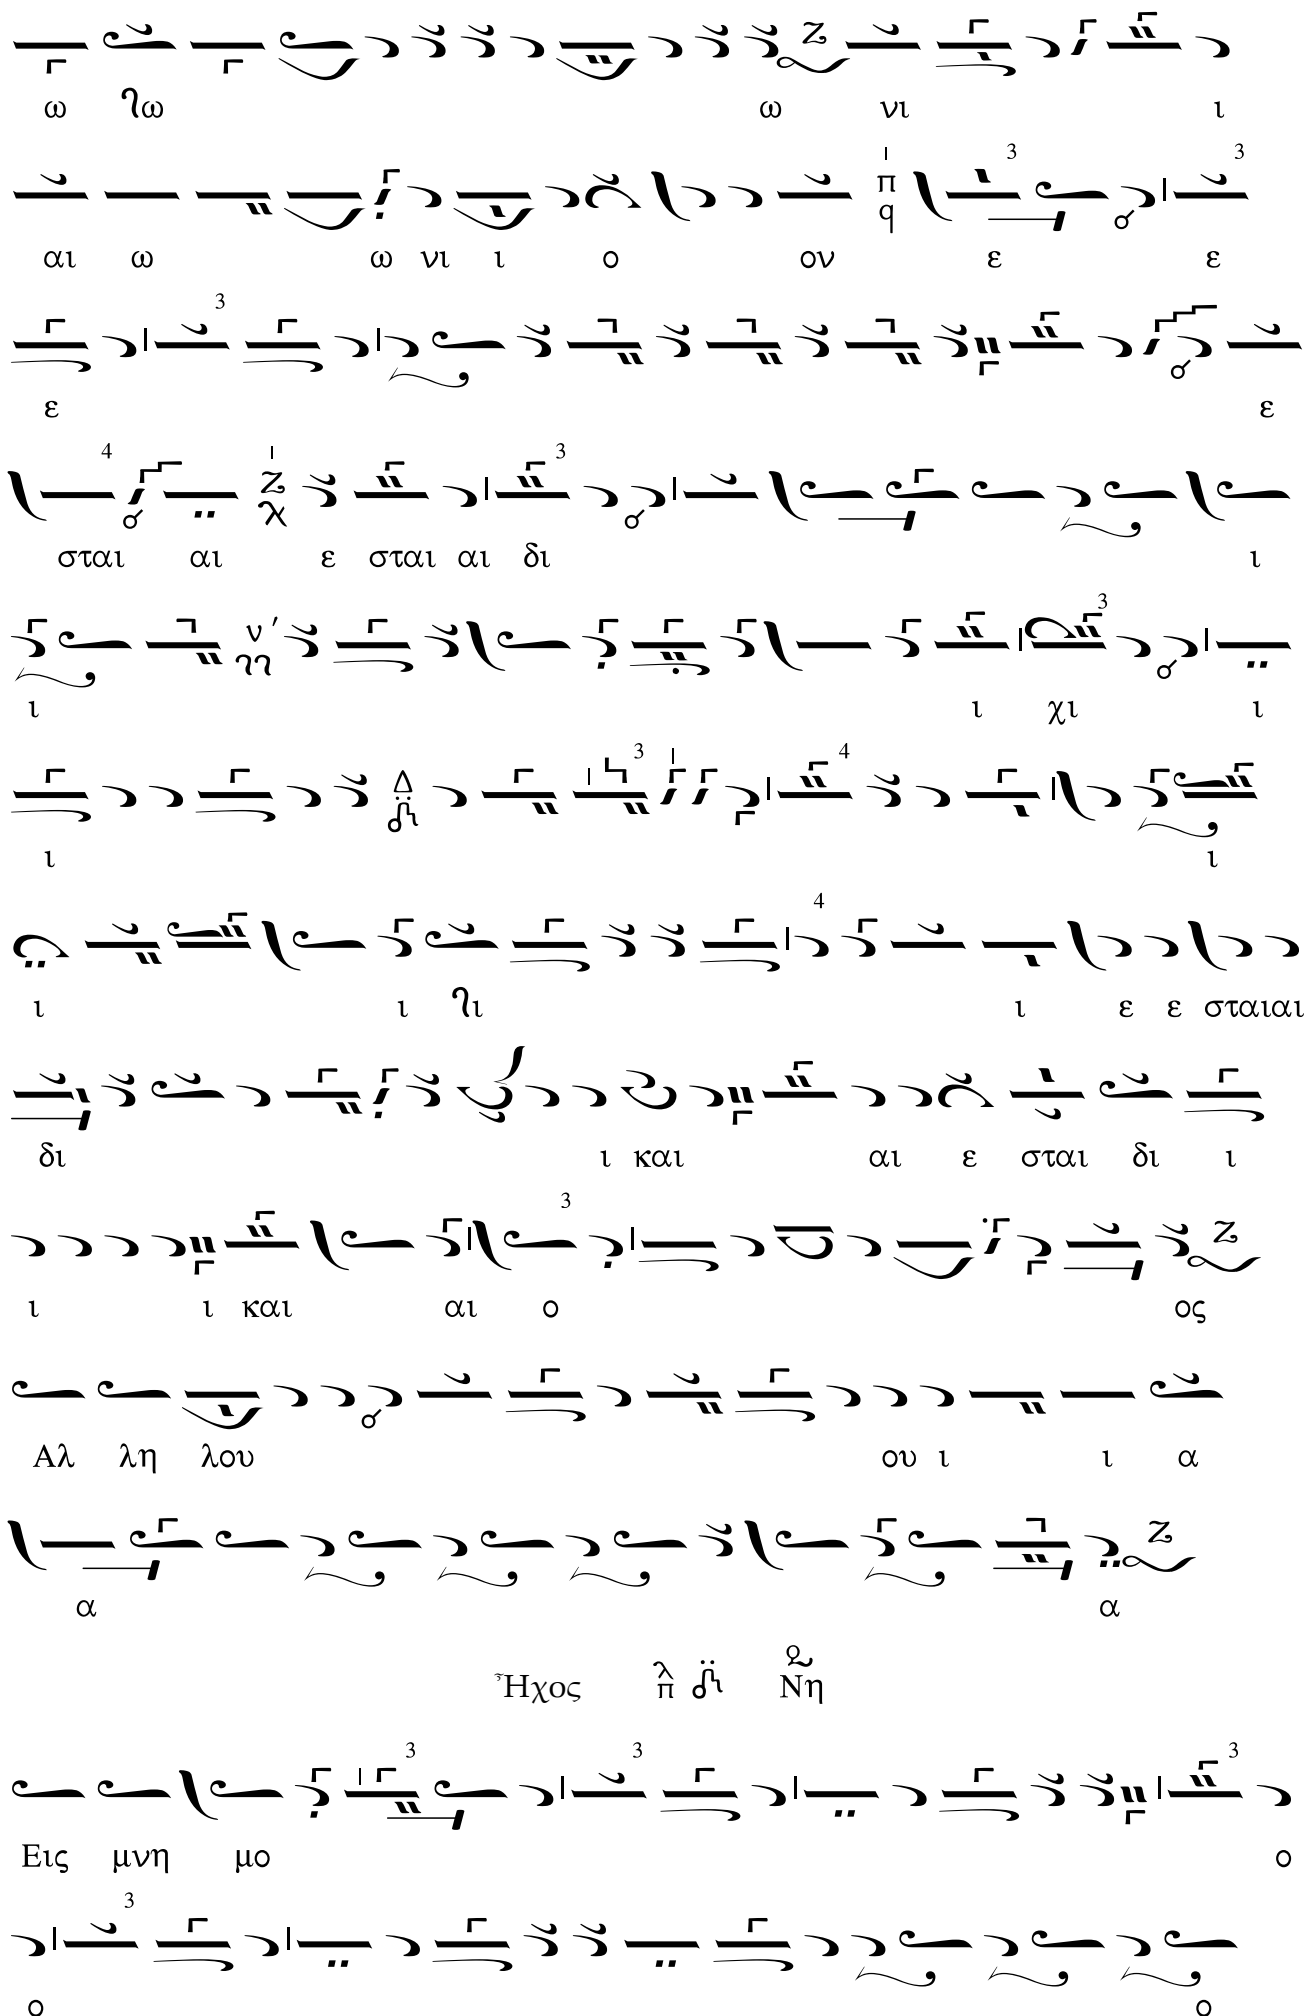 ω ω ω νι ι
αι ω ω νι ι ο ον ε ε
ε ε
σται αι ε σται αι δι ι
ι ι χι ι
ι ι
ι ι ι ι ε ε σταιαι
δι ι και αι ε σται δι ι
ι ι και αι ο ος
Αλ λη λου ου ι ι α
α α
Ἦχος λ π Νη
Εις μνη μο ο
ο ο